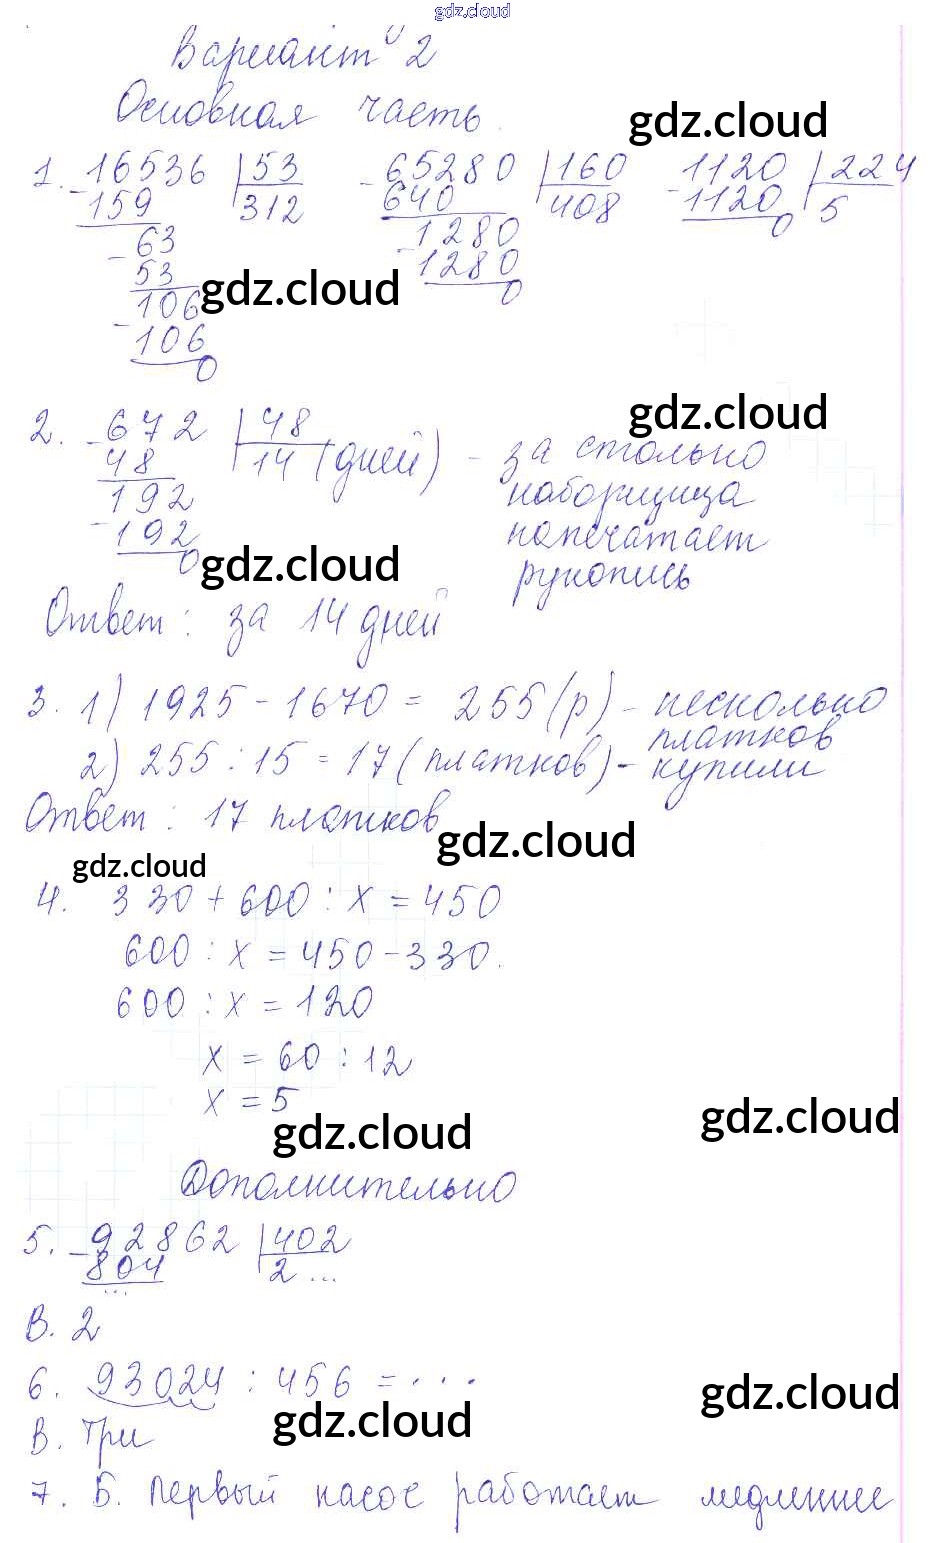 gdz.cloud
Вариант 2
Основная часть.
gdz.cloud
1. -16536 |53   -65280 |160   -1120 |224
159 312   640 408   1120 5
-63   -1280   0
53   1280
-106 gdz.cloud   0
106
0
gdz.cloud
2. -672 |48
48 14 (дней) - за столько
-192 наборщица
192 напечатает
0 gdz.cloud рукопись
Ответ: за 14 дней
3. 1) 1925 - 1670 = 255 (р) - несколько
платков
2) 255 : 15 = 17 (платков) - купили
Ответ: 17 платков
gdz.cloud
gdz.cloud
4. 330 + 600 : x = 450
600 : x = 450 - 330.
600 : x = 120
x = 60 : 12
x = 5
gdz.cloud gdz.cloud
Дополнительно
5. -92862 |402
804 2 ...
...
В. 2
6. 93024 : 456 = ...
gdz.cloud gdz.cloud
В. Три
7. Б. Первый насос работает медленнее